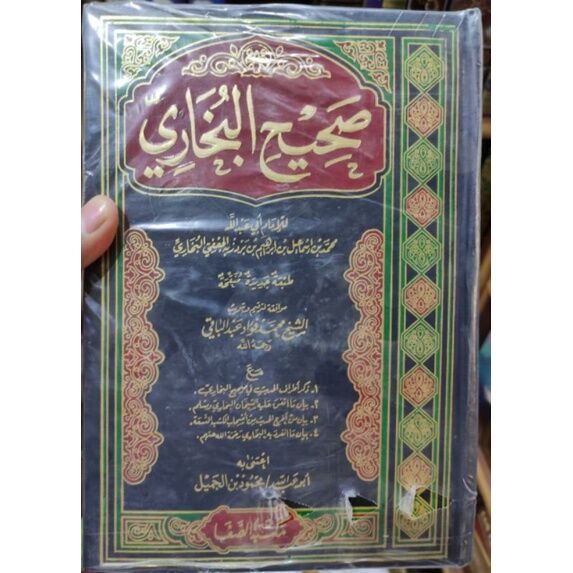 صَحِيْحُ البُخَارِيّ
للإمام أبي عبد الله
محمد بن اسماعيل بن ابراهيم بن بردزبه الجعفي البخاري
طبعة جديدة منقحة
موافقة لترقيم وتبويب
الشيخ محمد فؤاد عبد الباقي
رحمه الله
مع
١- ذكر أطراف الحديث في صحيح البخاري.
٢- بيان ما اتفق عليه الشيخان البخاري ومسلم.
٣- بيان من أخرج الحديث من أصحاب الكتب التسعة.
٤- بيان ما انفرد به البخاري رحمة الله عليهم.
اعتنى به
أبو عبد الله / محمود بن الجميل
مكتبة الصفا